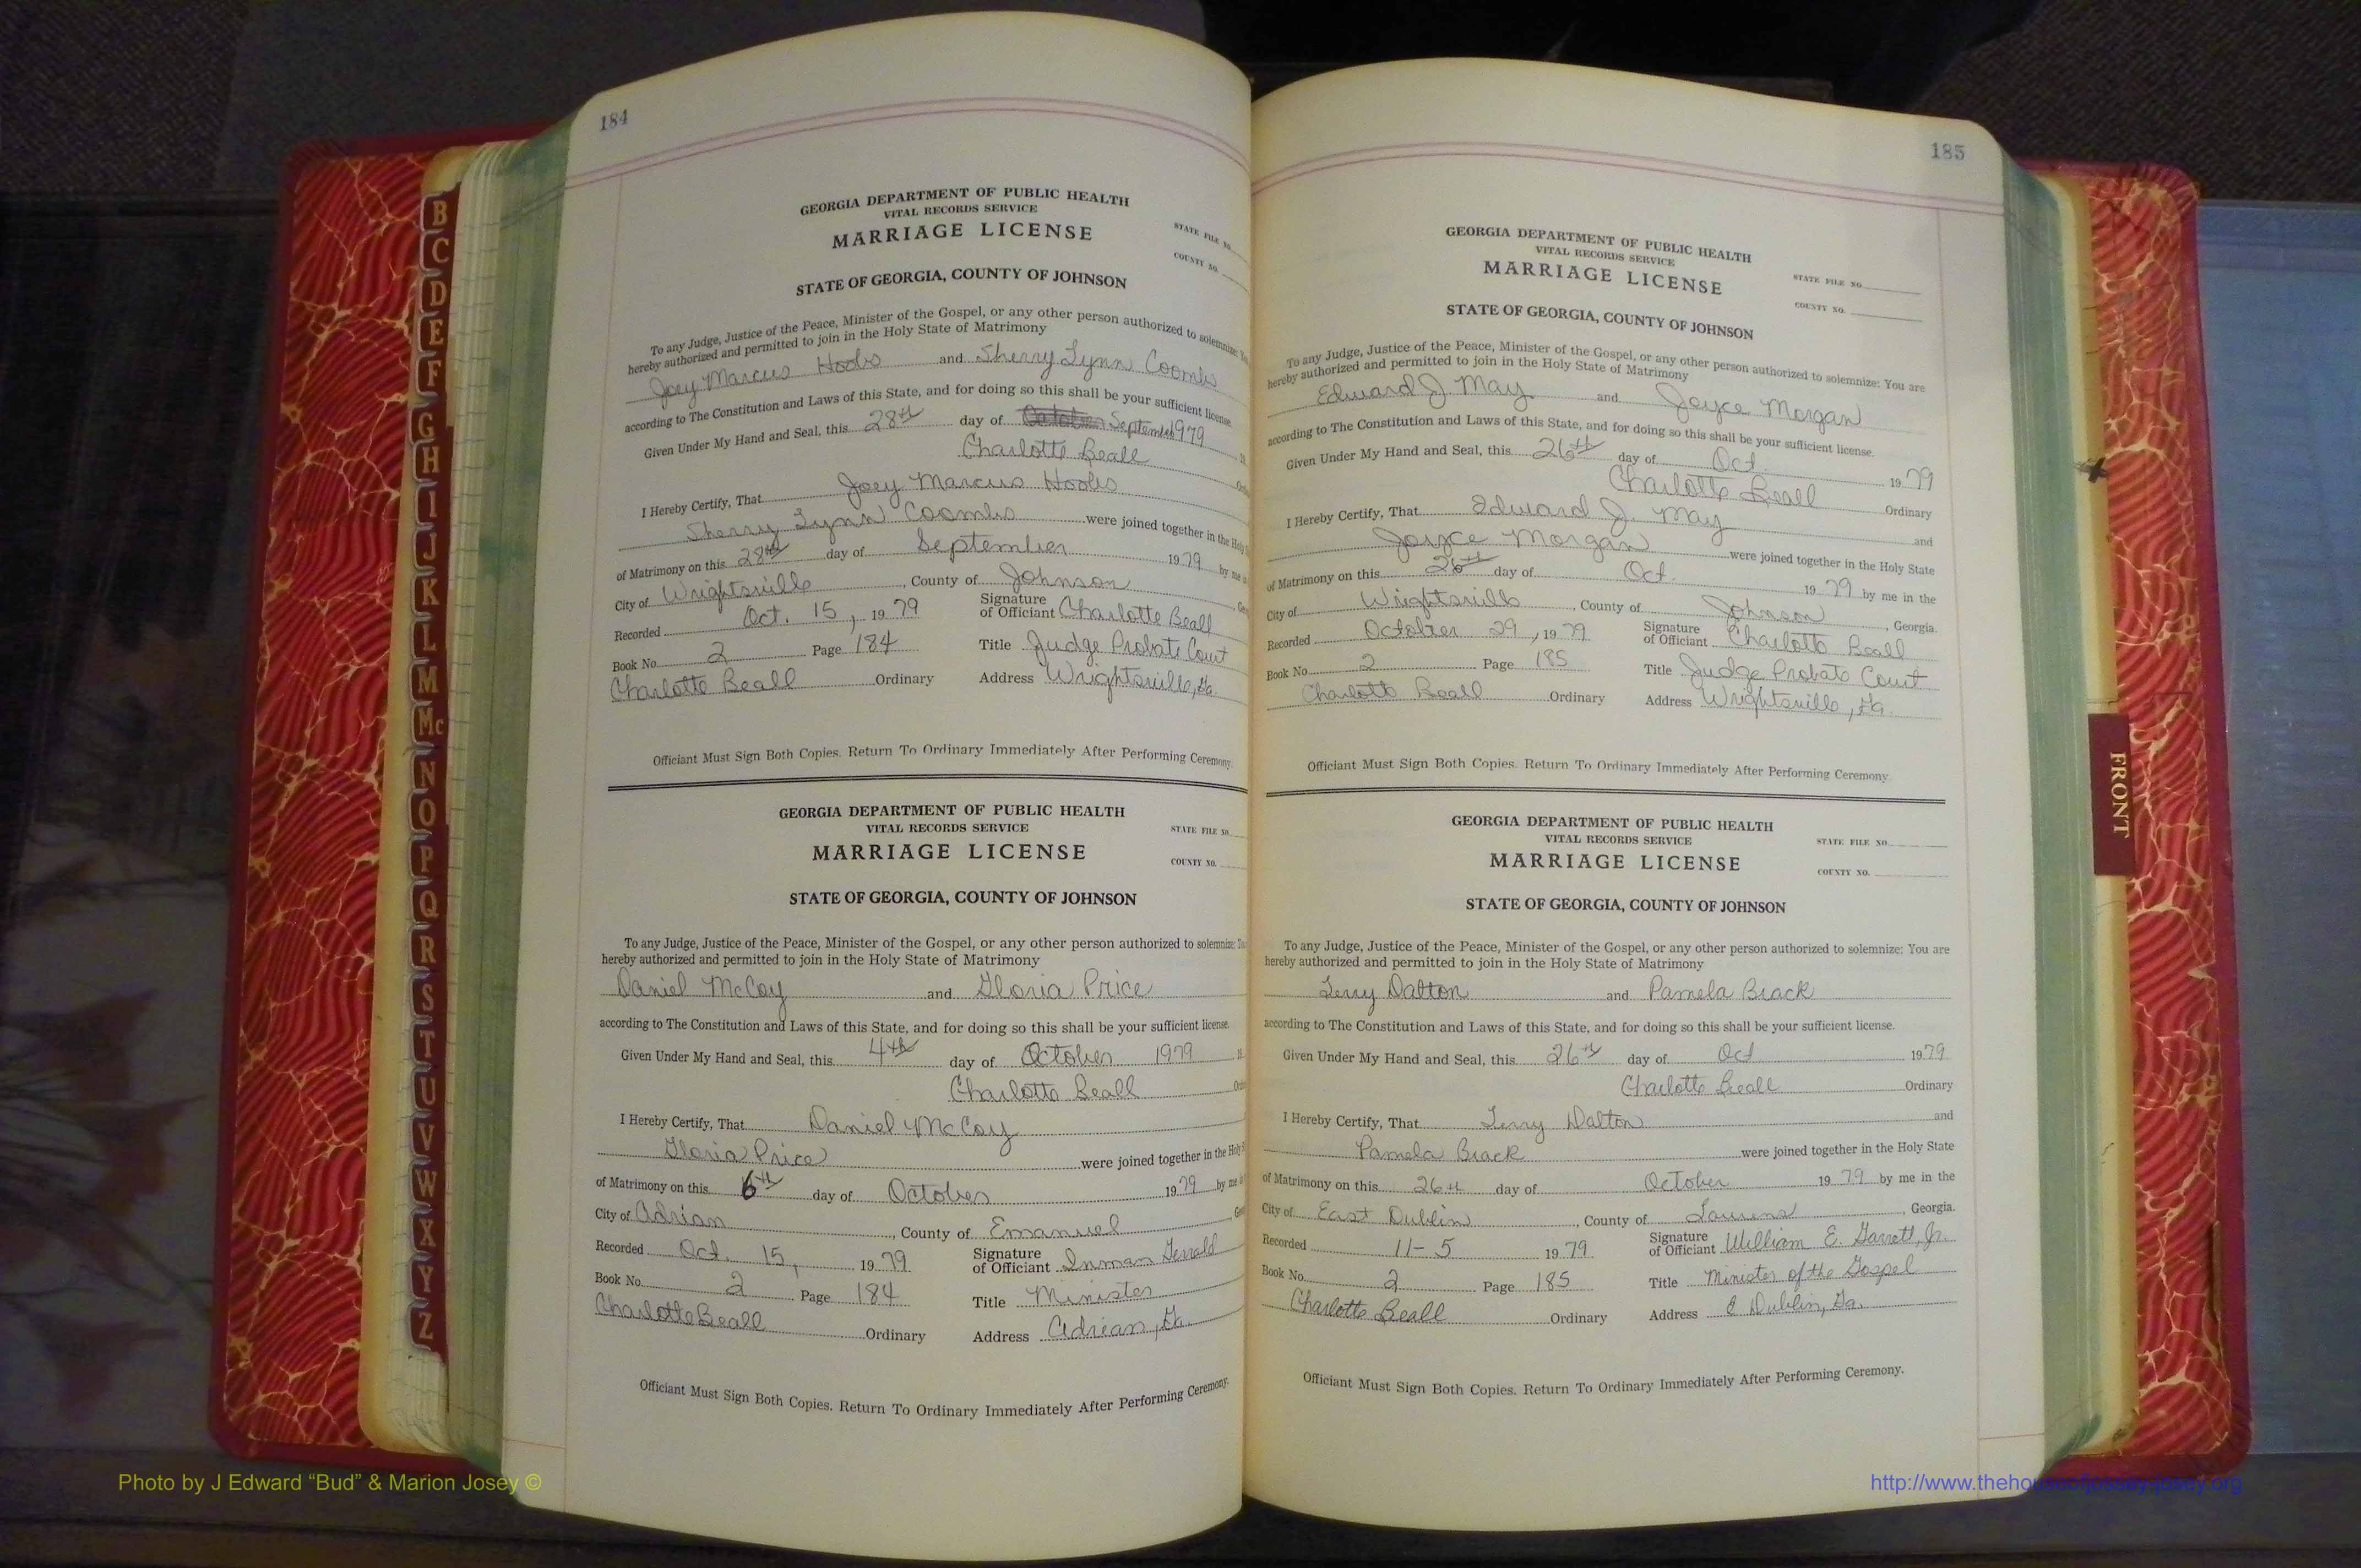 184
GEORGIA DEPARTMENT OF PUBLIC HEALTH
VITAL RECORDS SERVICE
MARRIAGE LICENSE
STATE FILE NO.
COUNTY NO.
STATE OF GEORGIA, COUNTY OF JOHNSON
To any Judge, Justice of the Peace, Minister of the Gospel, or any other person authorized to solemnize:
hereby authorized and permitted to join in the Holy State of Matrimony
Joey Marcus Hobbs and Sherry Lynn Coombs
according to The Constitution and Laws of this State, and for doing so this shall be your sufficient license.
Given Under My Hand and Seal, this 28th day of September 1979
Charlotte Beall
I Hereby Certify, That Joey Marcus Hoobs
Sherry Lynn Coombs were joined together in the Holy
of Matrimony on this 28th day of September 1979 by me
City of Wrightsville, County of Johnson
Recorded Oct. 15, 1979 Signature of Officiant Charlotte Beall
Book No. 2 Page 184 Title Judge Probate Court
Charlotte Beall Ordinary Address Wrightsville, Ga.
Officiant Must Sign Both Copies. Return To Ordinary Immediately After Performing Ceremony.
GEORGIA DEPARTMENT OF PUBLIC HEALTH
VITAL RECORDS SERVICE
MARRIAGE LICENSE
STATE FILE NO.
COUNTY NO.
STATE OF GEORGIA, COUNTY OF JOHNSON
To any Judge, Justice of the Peace, Minister of the Gospel, or any other person authorized to solemnize:
hereby authorized and permitted to join in the Holy State of Matrimony
Daniel McCoy and Gloria Price
according to The Constitution and Laws of this State, and for doing so this shall be your sufficient license.
Given Under My Hand and Seal, this 4th day of October 1979
Charlotte Beall
I Hereby Certify, That Daniel McCoy
Gloria Price were joined together in the Holy
of Matrimony on this 6th day of October 1979 by me
City of Adrian, County of Emanuel
Recorded Oct. 15, 1979 Signature of Officiant Inman Gerrald
Book No. 2 Page 184 Title Minister
Charlotte Beall Ordinary Address Adrian, Ga.
Officiant Must Sign Both Copies. Return To Ordinary Immediately After Performing Ceremony.
185
GEORGIA DEPARTMENT OF PUBLIC HEALTH
VITAL RECORDS SERVICE
MARRIAGE LICENSE
STATE FILE NO.
COUNTY NO.
STATE OF GEORGIA, COUNTY OF JOHNSON
To any Judge, Justice of the Peace, Minister of the Gospel, or any other person authorized to solemnize: You are
hereby authorized and permitted to join in the Holy State of Matrimony
Edward J. May and Joyce Morgan
according to The Constitution and Laws of this State, and for doing so this shall be your sufficient license.
Given Under My Hand and Seal, this 26th day of Oct. 1979
Charlotte Beall Ordinary
I Hereby Certify, That Edward J. May and
Joyce Morgan were joined together in the Holy State
of Matrimony on this 26th day of Oct. 1979 by me in the
City of Wrightsville, County of Johnson, Georgia.
Recorded October 29, 1979 Signature of Officiant Charlotte Beall
Book No. 2 Page 185 Title Judge Probate Court
Charlotte Beall Ordinary Address Wrightsville, Ga.
Officiant Must Sign Both Copies. Return To Ordinary Immediately After Performing Ceremony.
GEORGIA DEPARTMENT OF PUBLIC HEALTH
VITAL RECORDS SERVICE
MARRIAGE LICENSE
STATE FILE NO.
COUNTY NO.
STATE OF GEORGIA, COUNTY OF JOHNSON
To any Judge, Justice of the Peace, Minister of the Gospel, or any other person authorized to solemnize: You are
hereby authorized and permitted to join in the Holy State of Matrimony
Terry Dalton and Pamela Brack
according to The Constitution and Laws of this State, and for doing so this shall be your sufficient license.
Given Under My Hand and Seal, this 26th day of Oct 1979
Charlotte Beall Ordinary
I Hereby Certify, That Terry Dalton and
Pamela Brack were joined together in the Holy State
of Matrimony on this 26th day of October 1979 by me in the
City of East Dublin, County of Laurens, Georgia.
Recorded 11-5 1979 Signature of Officiant William E. Garrett, Jr.
Book No. 2 Page 185 Title Minister of the Gospel
Charlotte Beall Ordinary Address E Dublin, Ga.
Officiant Must Sign Both Copies. Return To Ordinary Immediately After Performing Ceremony.
B
C
D
E
F
G
H
I
J
K
L
M
Mc
N
O
P
Q
R
S
T
U
V
W
X
Y
Z
FRONT
Photo by J Edward “Bud” & Marion Josey ©
http://www.thehouseofjossey-josey.org